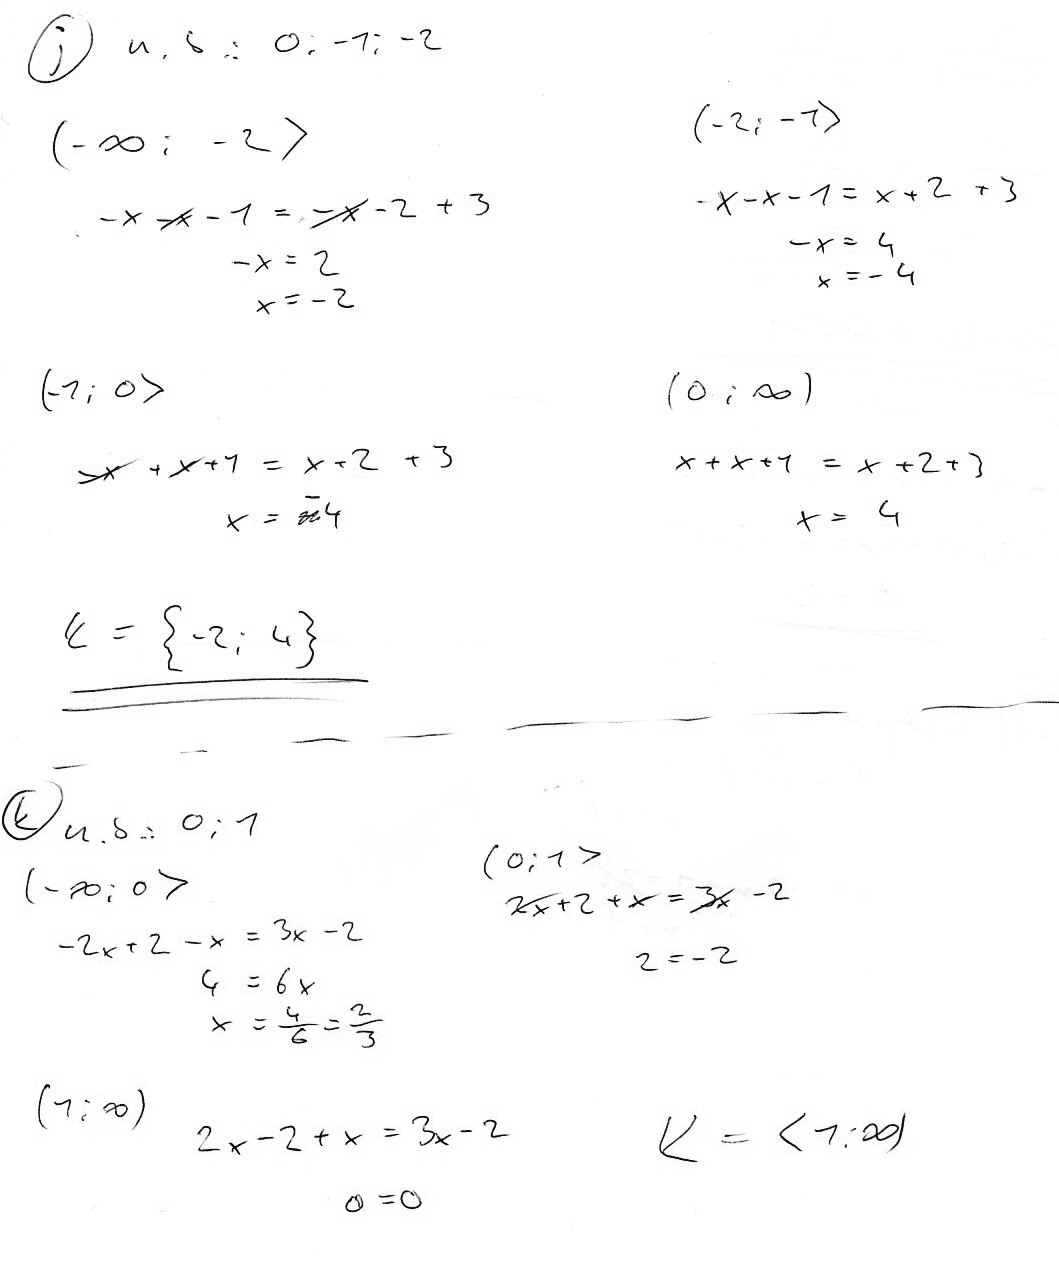 j) n. b.: 0; -1; -2
(-∞; -2>
-x -x - 1 = -x - 2 + 3
-x = 2
x = -2
(-2; -1>
-x - x - 1 = x + 2 + 3
-x = 4
x = -4
(-1; 0>
-x + x + 1 = x + 2 + 3
x = -4
(0; ∞)
x + x + 1 = x + 2 + 3
x = 4
K = {-2; 4}
k) n. b.: 0; 1
(-∞; 0>
-2x + 2 - x = 3x - 2
4 = 6x
x = 4/6 = 2/3
(0; 1>
2x + 2 + x = 3x - 2
2 = -2
(1; ∞)
2x - 2 + x = 3x - 2
0 = 0
K = <1; ∞)